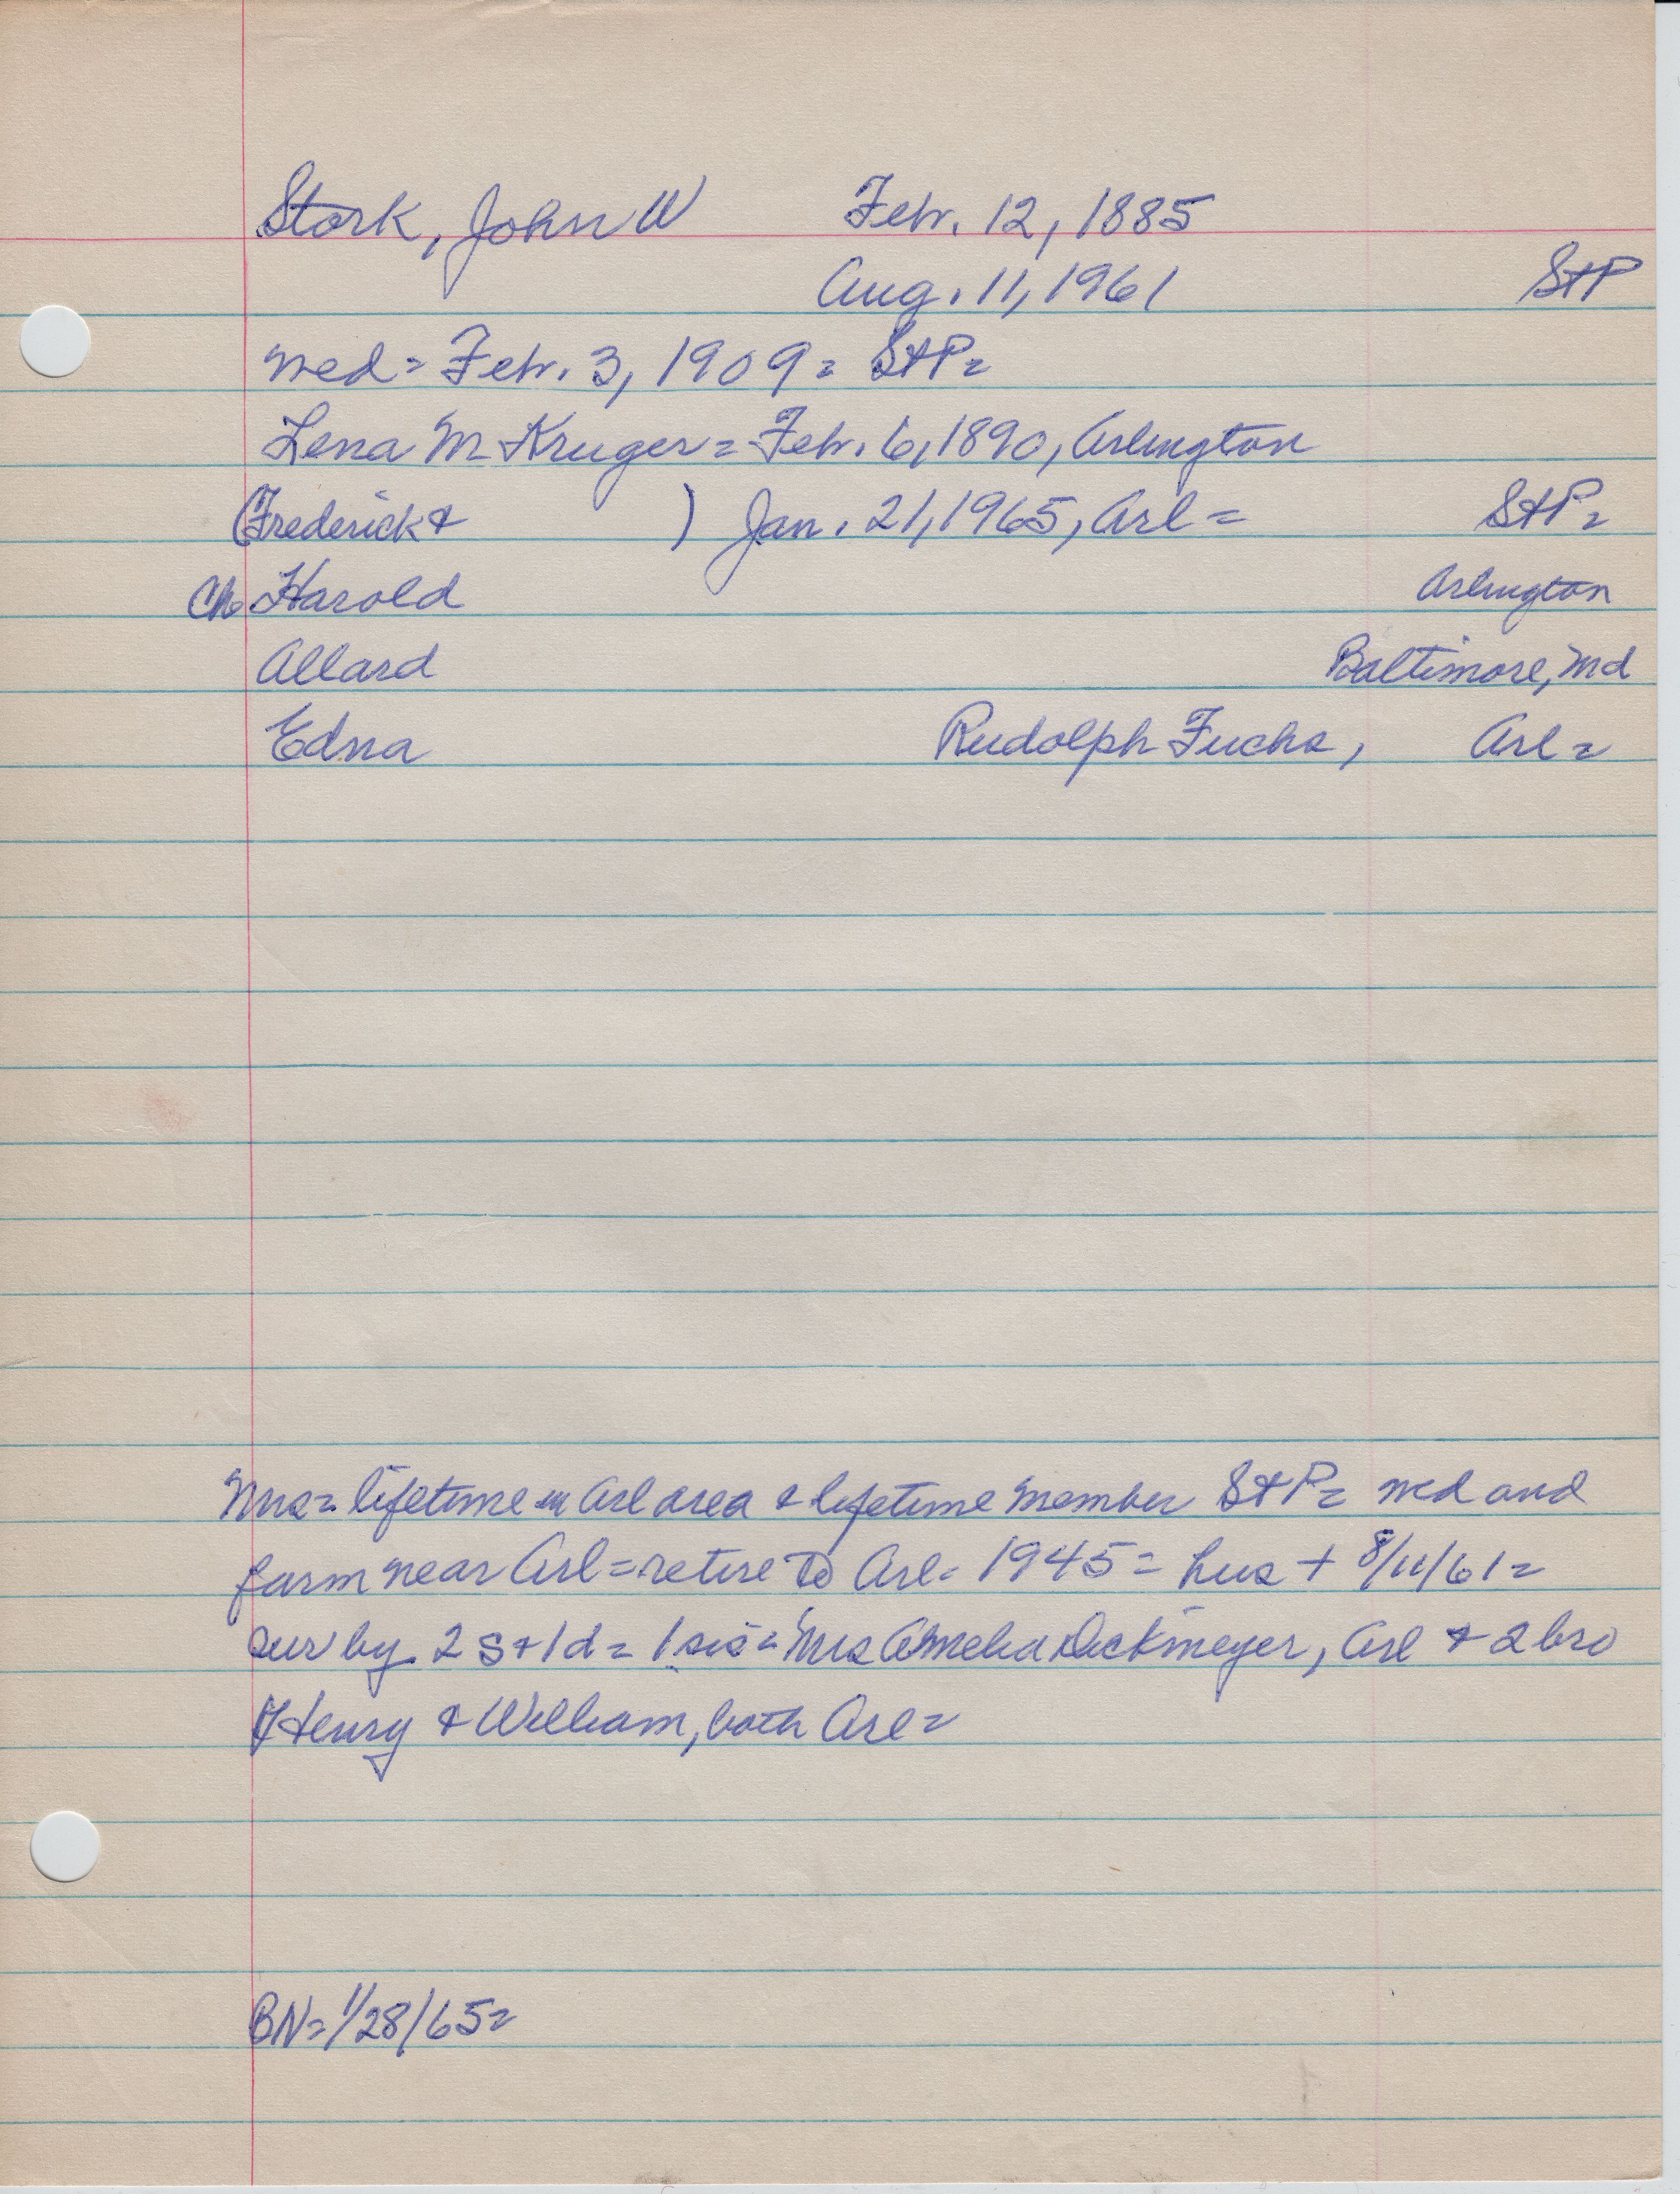 Stork, John W Febr. 12, 1885
Aug. 11, 1961 StP
med = Febr. 3, 1909 = StP=
Lena M Kruger = Febr. 6, 1890, Arlington
(Frederick & ) Jan. 21, 1965, Arl = StP=
Ch Harold Arlington
Allard Baltimore, Md
Edna Rudolph Fuchs, Arl =
Mrs = lifetime in Arl area & lifetime member StP= med and
farm near Arl = retire to Arl- 1945 = hus + 8/11/61 =
sur by 2 s + 1 d = 1 sis = Mrs Amelia Dickmeyer, Arl & 2 bro
Henry & William, both Arl =
BN = 1/28/65 =